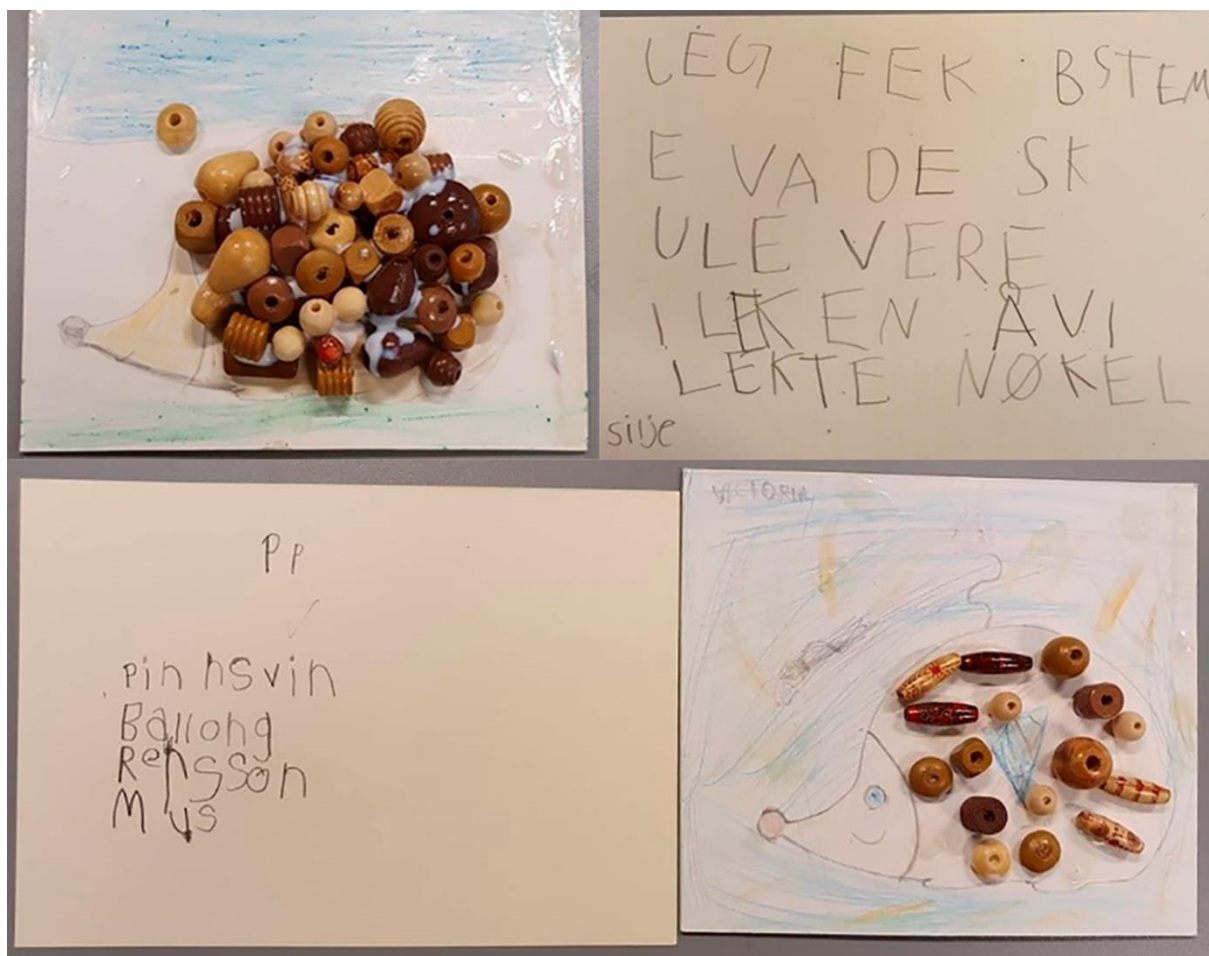 JEG FEK BSTEM
E VA DE SK
ULE VERE
I LEKEN ÅVI
LEKTE NØKEL
silje
Pp
pinnsvin
Ballong
Rensson
Mus
VICTORIA